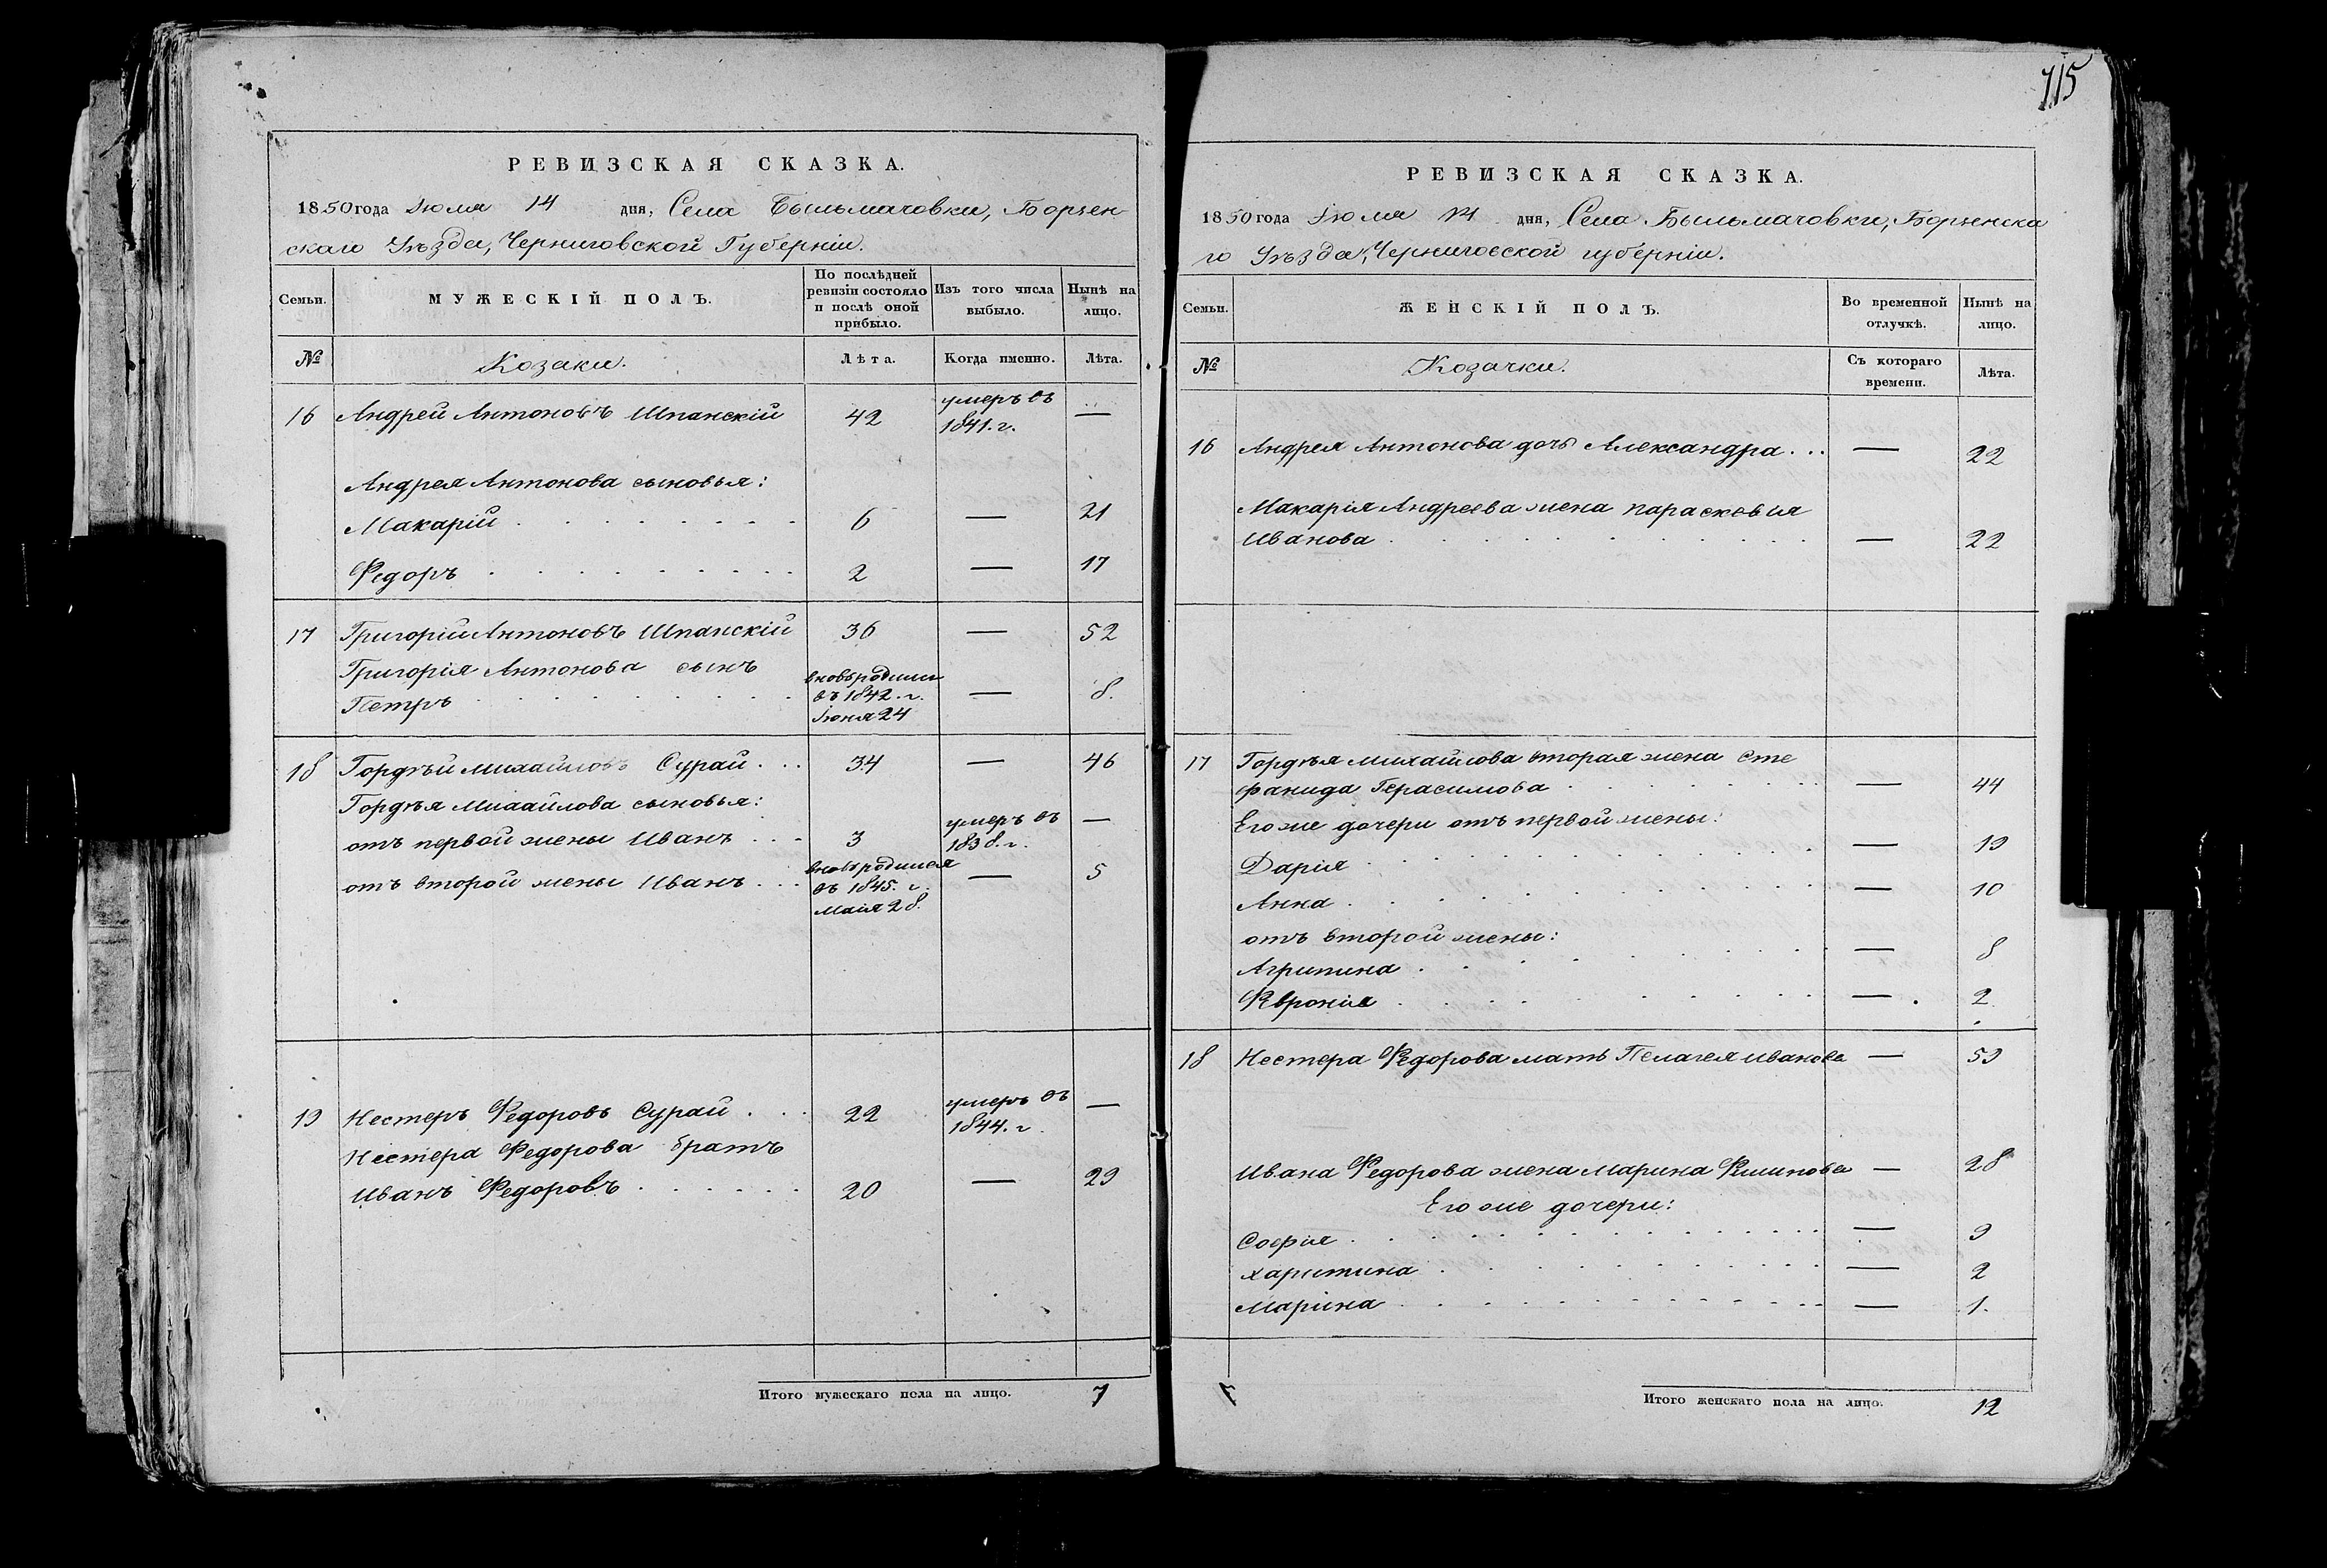 РЕВИЗСКАЯ СКАЗКА.
1850 года Іюля 14 дня, Села Быльмачовки, Борзен
скаго Уѣзда, Черниговской Губерніи.
Семьи.
МУЖЕСКІЙ ПОЛЪ.
По послѣдней ревизіи состояло и послѣ оной прибыло.
Изъ того числа выбыло.
Нынѣ на лицо.
№ Козаки. Лѣта. Когда именно. Лѣта.
16 Андрей Антоновъ Шпанскій 42 умеръ въ 1841. г. —
Андрея Антонова сыновья:
Макарій 6 — 21
Федоръ 2 — 17
17 Григорій Антоновъ Шпанскій 36 — 52
Григорія Антонова сынъ
Петръ вновь родился въ 1842. г. Іюня 24 — 8.
18 Гордѣй Михайловъ Сурай 34 — 46
Гордѣя Михайлова сыновья:
отъ первой жены Иванъ 3 умеръ въ 1838. г. —
отъ второй жены Иванъ вновь родился въ 1845. г. Маія 28. — 5
19 Нестеръ Федоровъ Сурай 22 умеръ въ 1844. г. —
Нестера Федорова братъ
Иванъ Федоровъ 20 — 29
Итого мужескаго пола на лицо. 7
715
РЕВИЗСКАЯ СКАЗКА.
1850 года Іюля 14 дня, Села Быльмачовки, Борзенска
го Уѣзда, Черниговской губерніи.
Семьи.
ЖЕНСКІЙ ПОЛЪ.
Во временной отлучкѣ.
Нынѣ на лицо.
№ Козачки. Съ котораго времени. Лѣта.
16 Андрея Антонова дочь Александра — 22
Макарія Андреева жена Параскевія
Иванова — 22
17 Гордѣя Михайлова вторая жена Сте
фанида Герасимова — 44
Его же дочери отъ первой жены:
Дарія — 19
Анна — 10
отъ второй жены:
Агрипина — 8
Февронія — 2
18 Нестера Федорова мать Пелагея Иванова — 59
Ивана Федорова жена Марина Филипова — 28
Его же дочери:
Софія — 9
Харитина — 2
Марина — 1.
7
Итого женскаго пола на лицо. 12